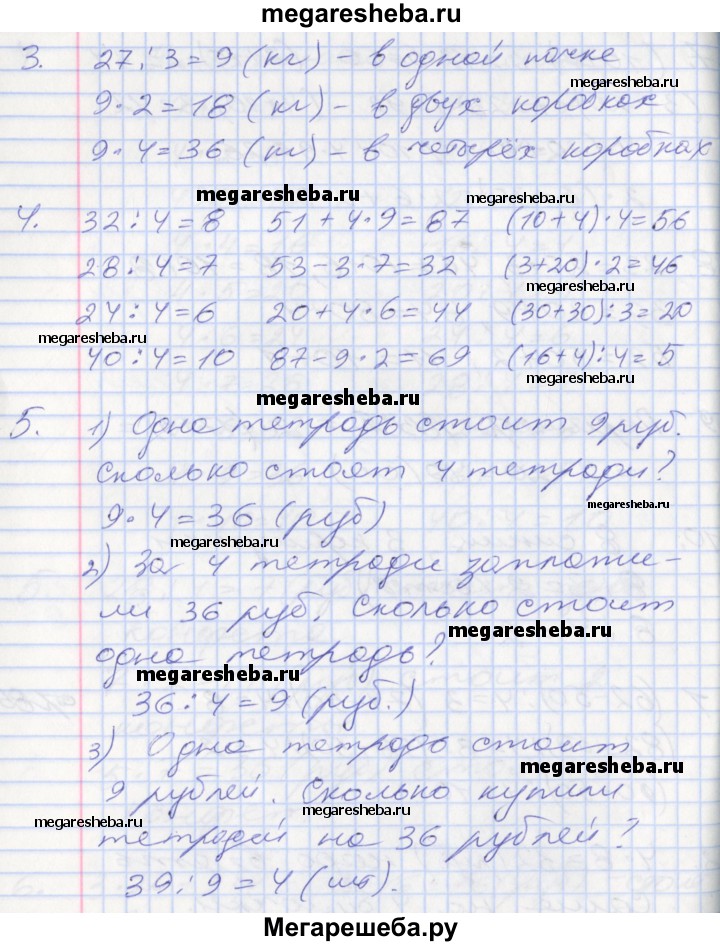 megaresheba.ru
3. 27:3=9 (кг) – в одной пачке
megaresheba.ru
9·2=18 (кг) – в двух коробках
9·4=36 (кг) – в четырёх коробках
megaresheba.ru megaresheba.ru
4. 32:4=8 51+4·9=87 (10+4)·4=56
28:4=7 53-3·7=32 (3+20)·2=46
megaresheba.ru
24:4=6 20+4·6=44 (30+30):3=20
megaresheba.ru
40:4=10 87-9·2=69 (16+4):4=5
megaresheba.ru
megaresheba.ru
5. 1) Одна тетрадь стоит 9 руб.
megaresheba.ru
Сколько стоят 4 тетради?
megaresheba.ru
9·4=36 (руб)
megaresheba.ru
2) За 4 тетради заплати-
ли 36 руб. Сколько стоит
megaresheba.ru
одна тетрадь?
megaresheba.ru
36:4=9 (руб.)
3) Одна тетрадь стоит
megaresheba.ru
9 рублей. Сколько купили
megaresheba.ru
megaresheba.ru
тетрадей на 36 рублей?
39:9=4 (шт).
Мегарешеба.ру